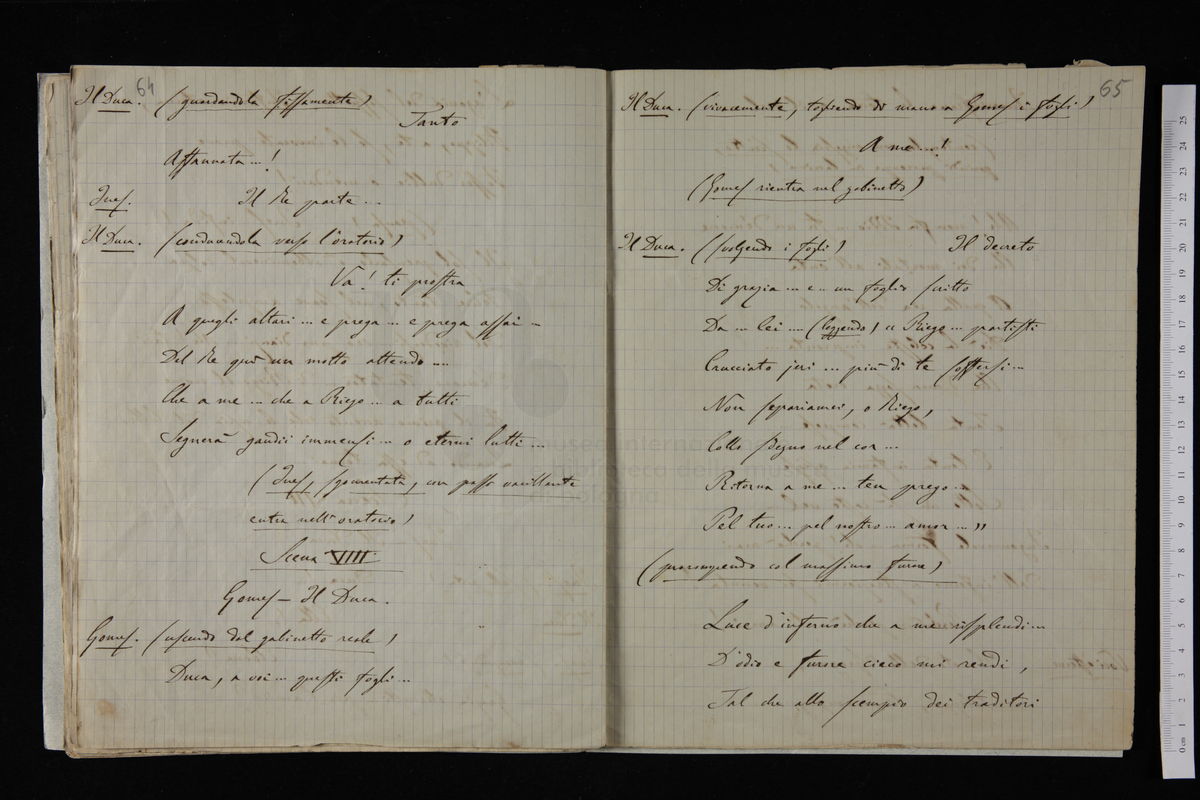 64
Il Duca. (guardandola fissamente)
Tanto
Affannata...!
Ines. Il Re parte...
Il Duca. (conducendola verso l'oratorio)
Va! ti prostra
A quegli altari... e prega... e prega assai...
Del Re quì un motto attendo....
Che a me... che a Riego... a tutti
Segnerà gaudii immensi... o eterni lutti...
(Ines, spaventata, con passo vacillante
entra nell'oratorio)
Scena VIII
Gomes - Il Duca.
Gomes. (uscendo dal gabinetto reale)
Duca, a voi... questi fogli...
65
Il Duca. (vivacemente, togliendo di mano a Gomes i fogli)
A me...!
(Gomes rientra nel gabinetto)
Il Duca. (svolgendo i fogli) Il decreto
Di grazia... e... un foglio scritto
Da... lei.... (leggendo) "Riego... partisti
Crucciato jeri... più di te soffersi...
Non separiamci, o Riego,
Collo sdegno nel cor...
Ritorna a me... ten prego...
Pel tuo... pel nostro... amor..."
(prorompendo col massimo furore)
Luce d'inferno che a me risplendi...
D'odio e furore cieco mi rendi,
Tal che allo scempio dei traditori